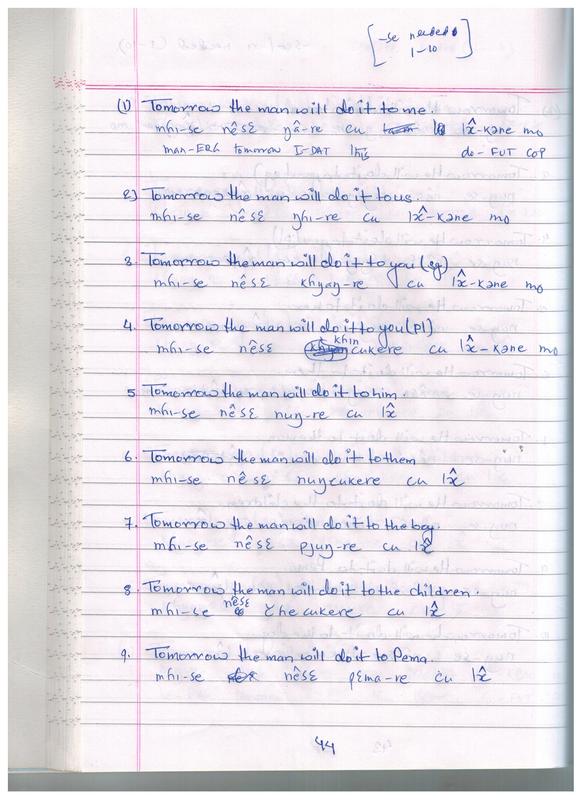 [-se needed
1-10]
(1) Tomorrow the man will do it to me.
mɦi-se nêsɛ ŋâ-re cu lx̂-kəne mo
man-ERG tomorrow I-DAT this do-FUT COP
2) Tomorrow the man will do it to us.
mɦi-se nêsɛ ŋɦi-re cu lx̂-kəne mo
3. Tomorrow the man will do it to you (sg)
mɦi-se nêsɛ khyaŋ-re cu lx̂-kəne mo
4. Tomorrow the man will do it to you (Pl)
khin
mɦi-se nêsɛ cukere cu lx̂-kəne mo
5 Tomorrow the man will do it to him.
mɦi-se nêsɛ nuŋ-re cu lx̂
6. Tomorrow the man will do it to them
mɦi-se nêsɛ nuŋcukere cu lx̂
7. Tomorrow the man will do it to the boy.
mɦi-se nêsɛ pjuŋ-re cu lx̂
8. Tomorrow the man will do it to the children.
nêsɛ
mɦi-se cukere cu lx̂
9. Tomorrow the man will do it to Pema.
mɦi-se nêsɛ pɛma-re cu lx̂
44